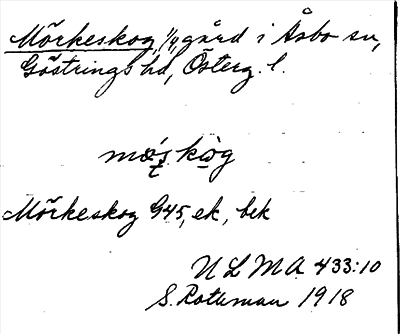 Mörkeskog, 1/4 gård i Åsbo sn,
Göstrings hd, Österg. l.
Mörkeskog G45, ek, bek
ULMA 433:10
S. Rothman 1918